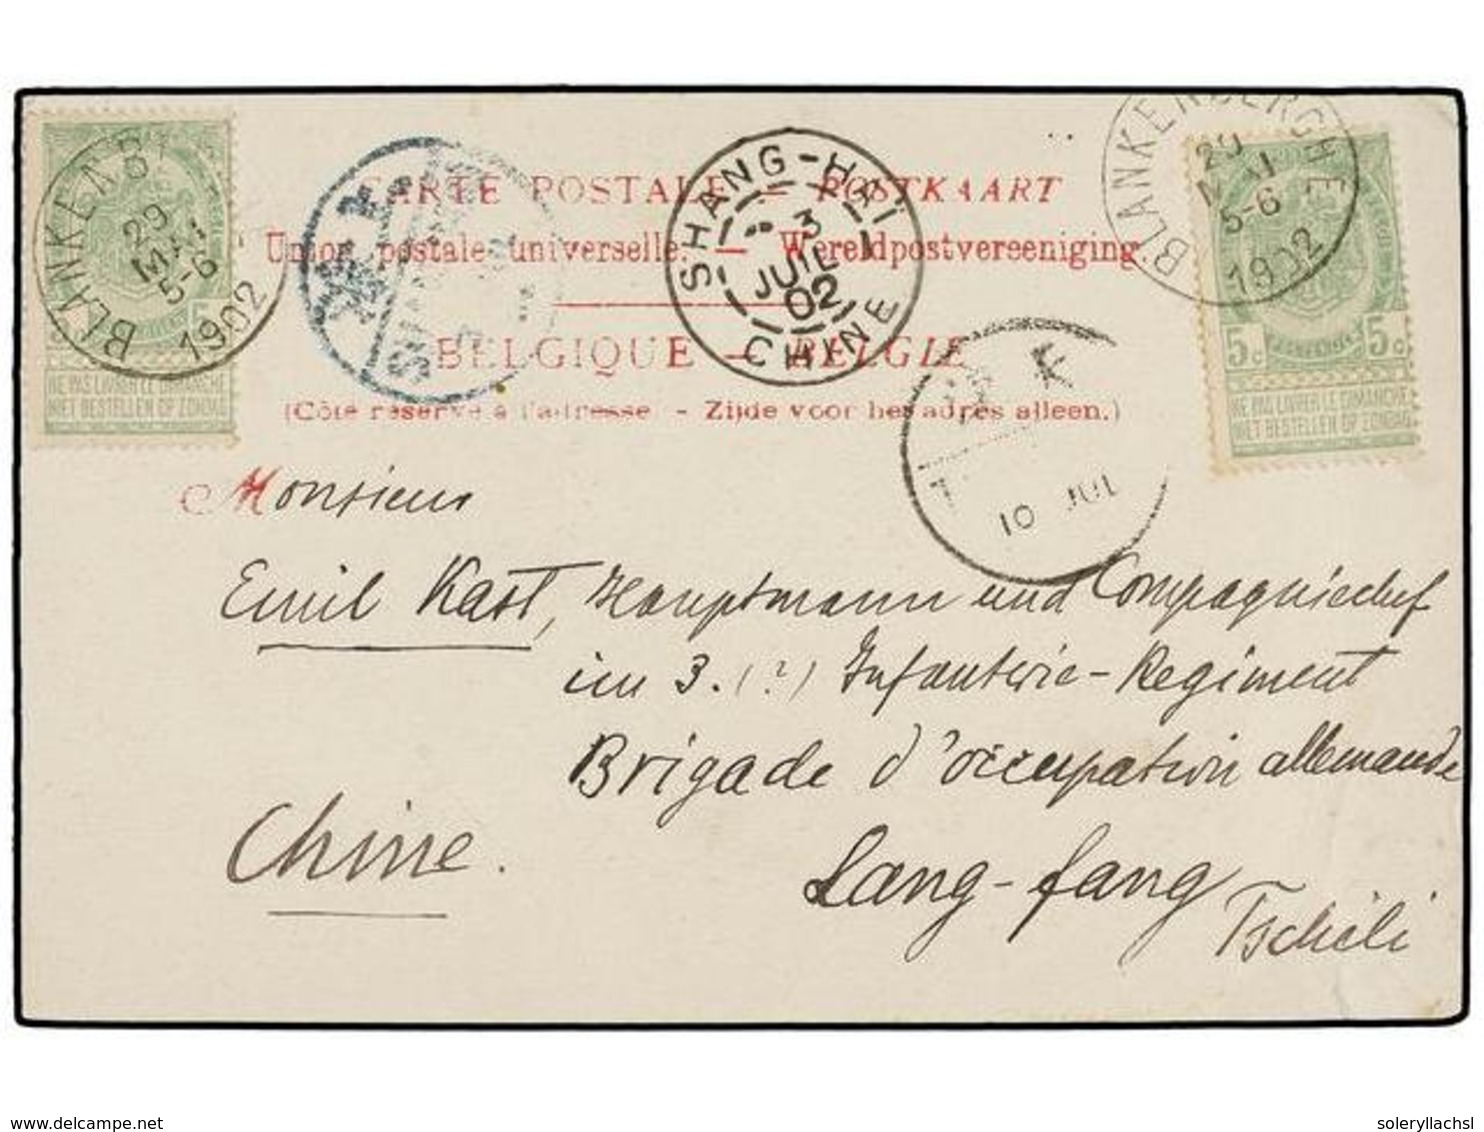 BLANKENB
29
MAI
5-6
1902
5
NE PAS LIVRER LE DIMANCHE
NIET BESTELLEN OP ZONDAG
CARTE POSTALE — POSTKAART
Union postale universelle. — Wereldpostvereeniging.
BELGIQUE — BELGIE
(Côté réservé à l'adresse - Zijde voor het adres alleen.)
SHANG-HAI
3
JUIL
02
CHINE
10 JUL
BLANKENBERGHE
29
MAI
5-6
1902
5c 5c
NE PAS LIVRER LE DIMANCHE
NIET BESTELLEN OP ZONDAG
Monsieur
Emil Kast, Hauptmann und Compagniechef
im 3. (?) Infanterie-Regiment
Brigade d'occupation allemande
Lang-fang
Chine.
Tschili
delcampe.net
soleryllachsl